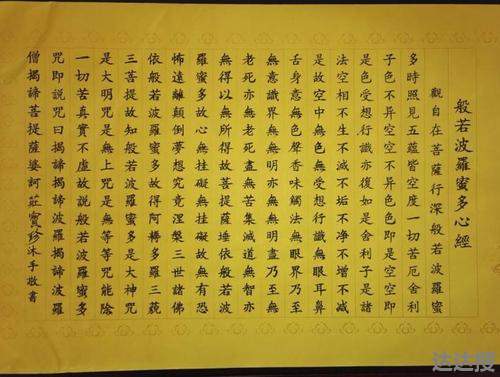 般若波羅蜜多心經
觀自在菩薩行深般若波羅蜜
多時照見五蘊皆空度一切苦厄舍利
子色不異空空不異色色即是空空即
是色受想行識亦復如是舍利子是諸
法空相不生不滅不垢不净不增不減
是故空中無色無受想行識無眼耳鼻
舌身意無色聲香味觸法無眼界乃至
無意識界無無明亦無無明盡乃至無
老死亦無老死盡無苦集滅道無智亦
無得以無所得故菩提薩埵依般若波
羅蜜多故心無挂礙無挂礙故無有恐
怖遠離顛倒夢想究竟涅槃三世諸佛
依般若波羅蜜多故得阿耨多羅三藐
三菩提故知般若波羅蜜多是大神咒
是大明咒是無上咒是無等等咒能除
一切苦真實不虛故說般若波羅蜜多
咒即說咒曰揭諦揭諦波羅揭諦波羅
僧揭諦菩提薩婆訶莊寶珍沐手敬書
达达搜